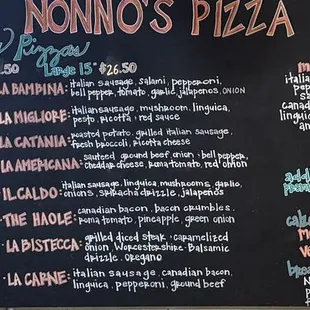 NONNO'S PIZZA
Pizzas
.50 Large 15" $26.50
LA BAMBINA: italian sausage, salami, pepperoni,
bell pepper, tomato, garlic, jalapenos, onion
LA MIGLIORE: italian sausage, mushroom, linguica,
pesto, ricotta + red sauce
LA CATANIA: roasted potato, grilled italian sausage,
fresh broccoli, ricotta cheese
LA AMERICANA: sauteed ground beef, onion + bell pepper,
cheddar cheese, roma tomato, red onion
IL CALDO: italian sausage, linguica, mushrooms, garlic,
onions, sriracha drizzle, jalapenos
THE HAOLE: canadian bacon, bacon crumbles,
roma tomato, pineapple, green onion
LA BISTECCA: grilled diced steak, caramelized
onion, Worcestershire Balsamic
drizzle, oregano
LA CARNE: italian sausage, canadian bacon,
linguica, pepperoni, ground beef